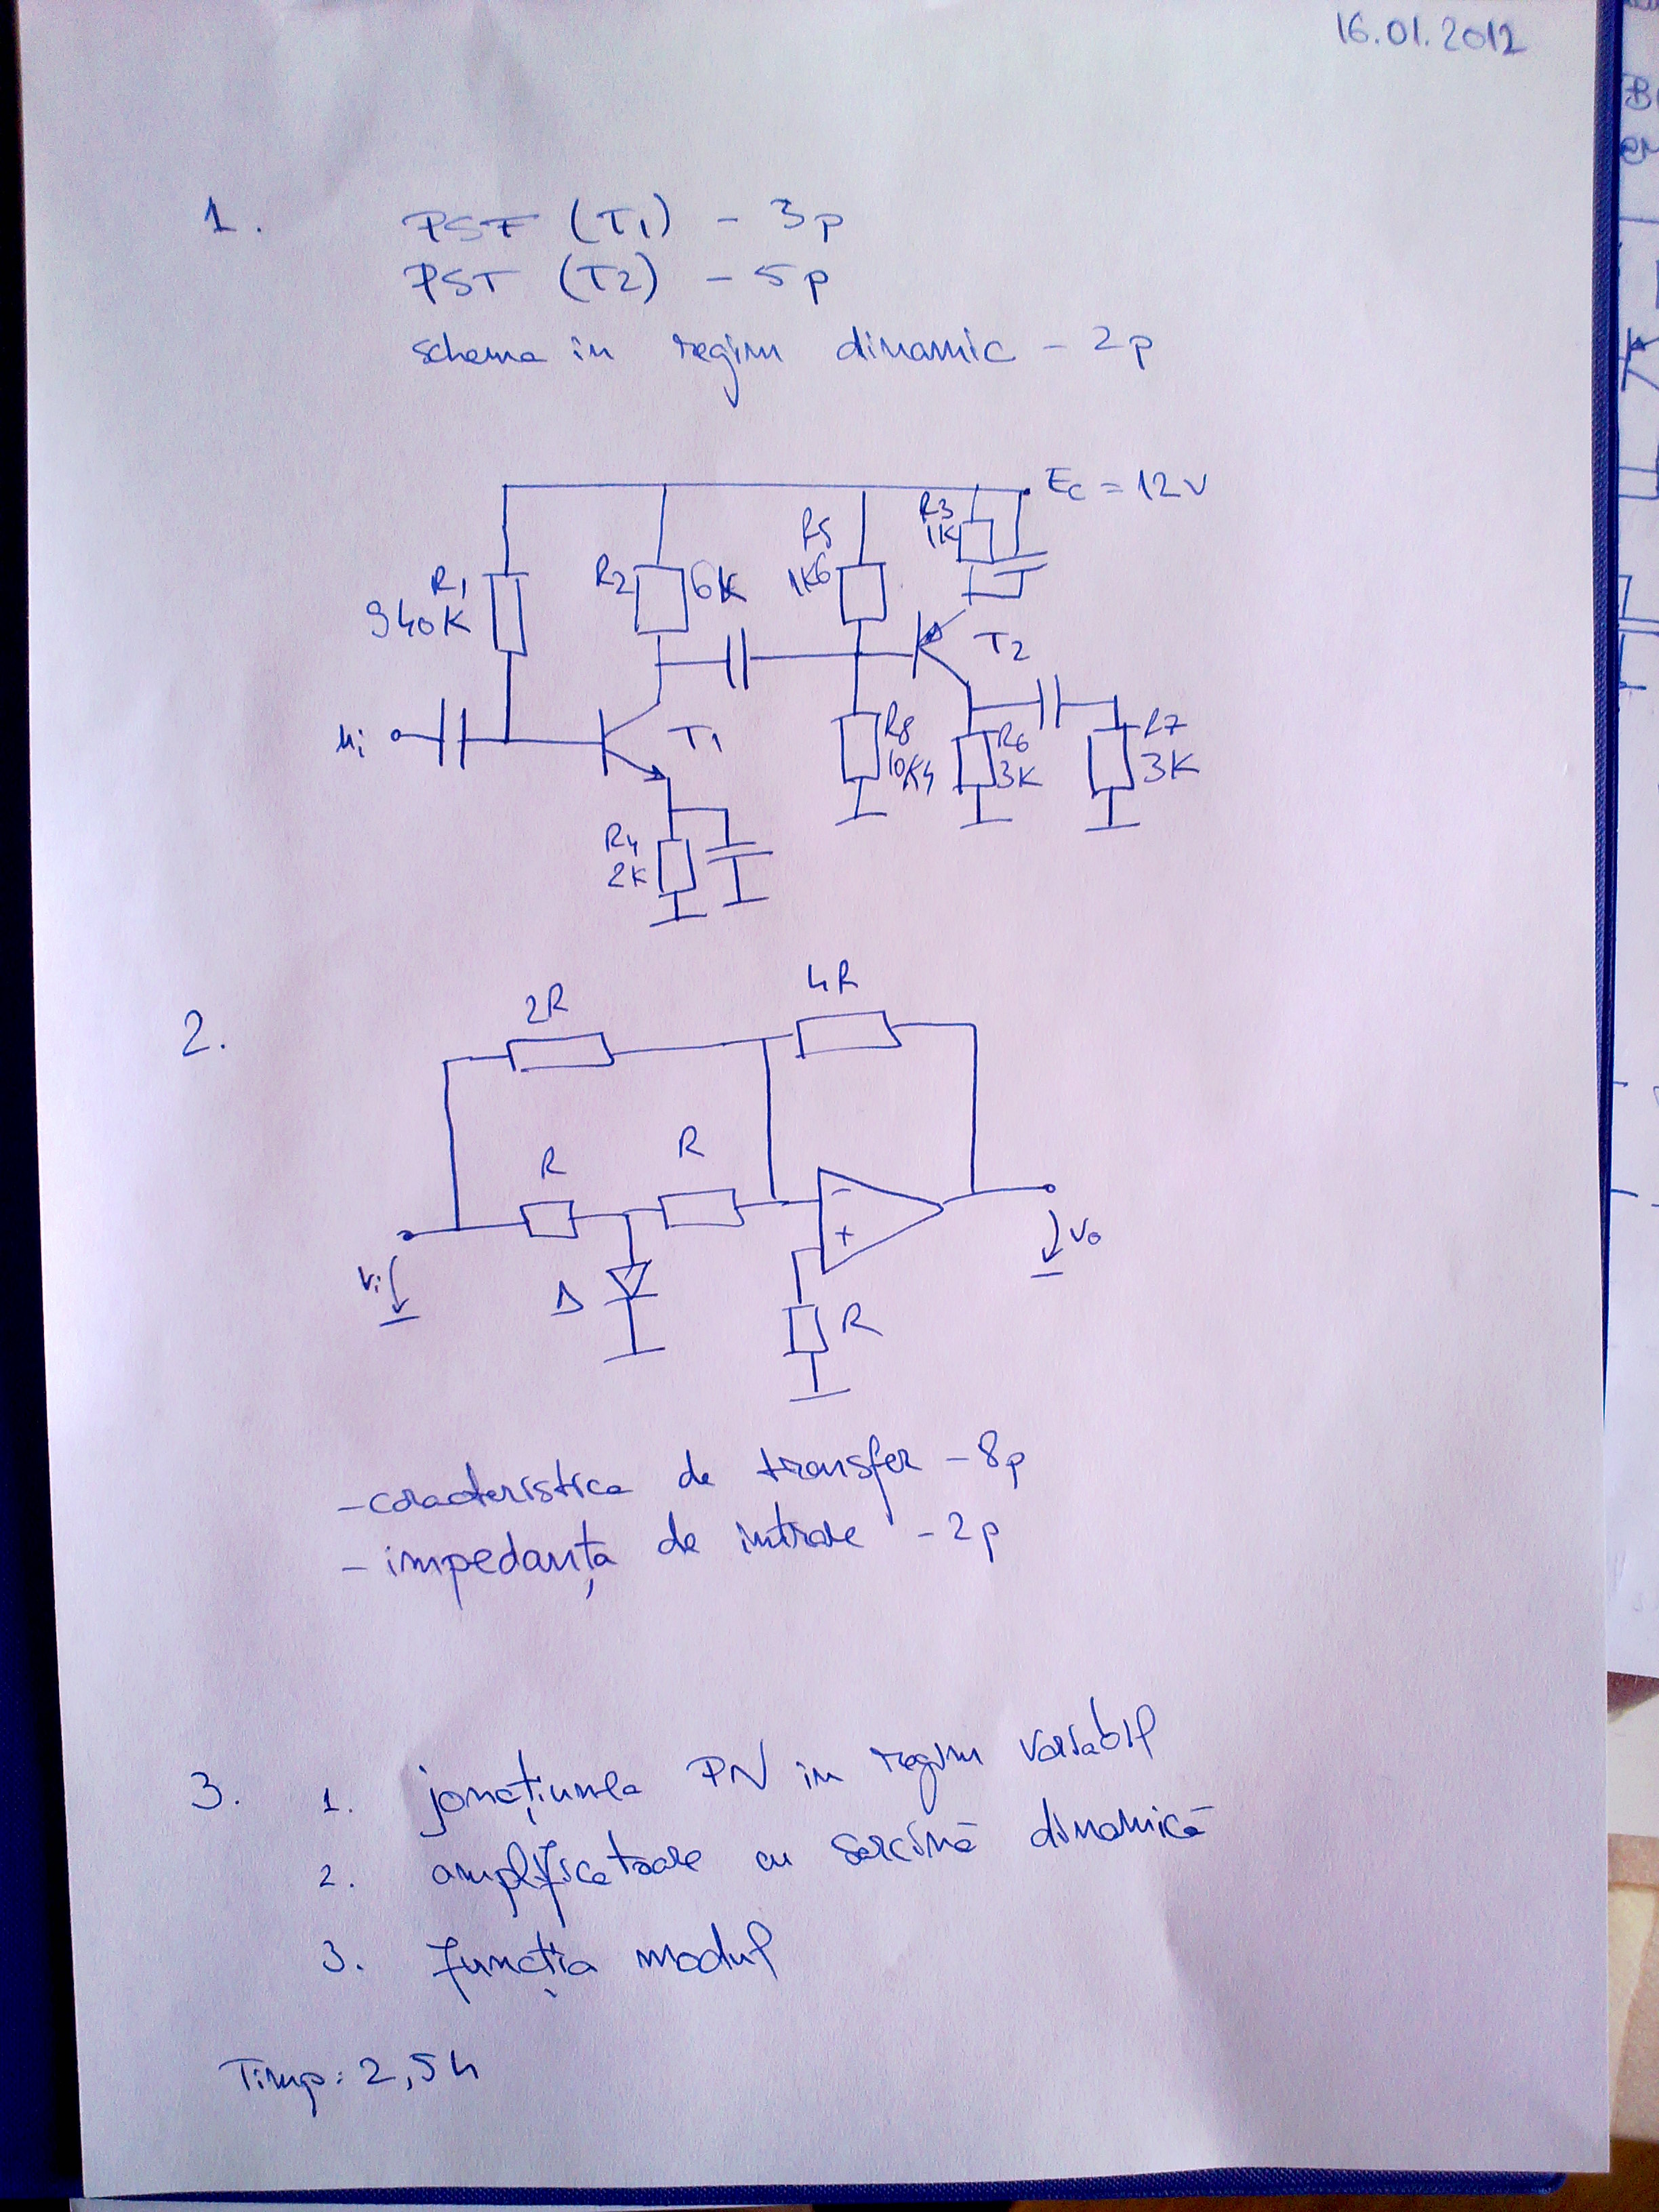 16.01.2012
1. PSF (T1) - 3p
PST (T2) - 5p
schema in regim dinamic - 2p
EC = 12V
R1
940K
R2 6K
R5
1K6
R3
1K
T2
ui
T1
R8
10K4
R6
3K
R7
3K
R4
2K
2.
2R
4R
R
R
-
+
Vi
D
R
Vo
- caracteristica de transfer - 8p
- impedanța de intrare - 2p
3. 1. joncțiunea PN in regim variabil
2. amplificatoare cu sarcină dinamică
3. funcția modul
Timp: 2,5h